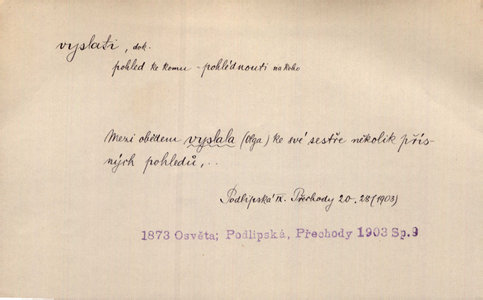 vyslati, dok.
pohled ke komu - pohlédnouti na koho
Mezi obědem vyslala (Olga) ke své sestře několik přís-
ných pohledů,..
Podlipská IX. Přechody 20.-28 (1903)
1873 Osvěta; Podlipská, Přechody 1903 Sp.9